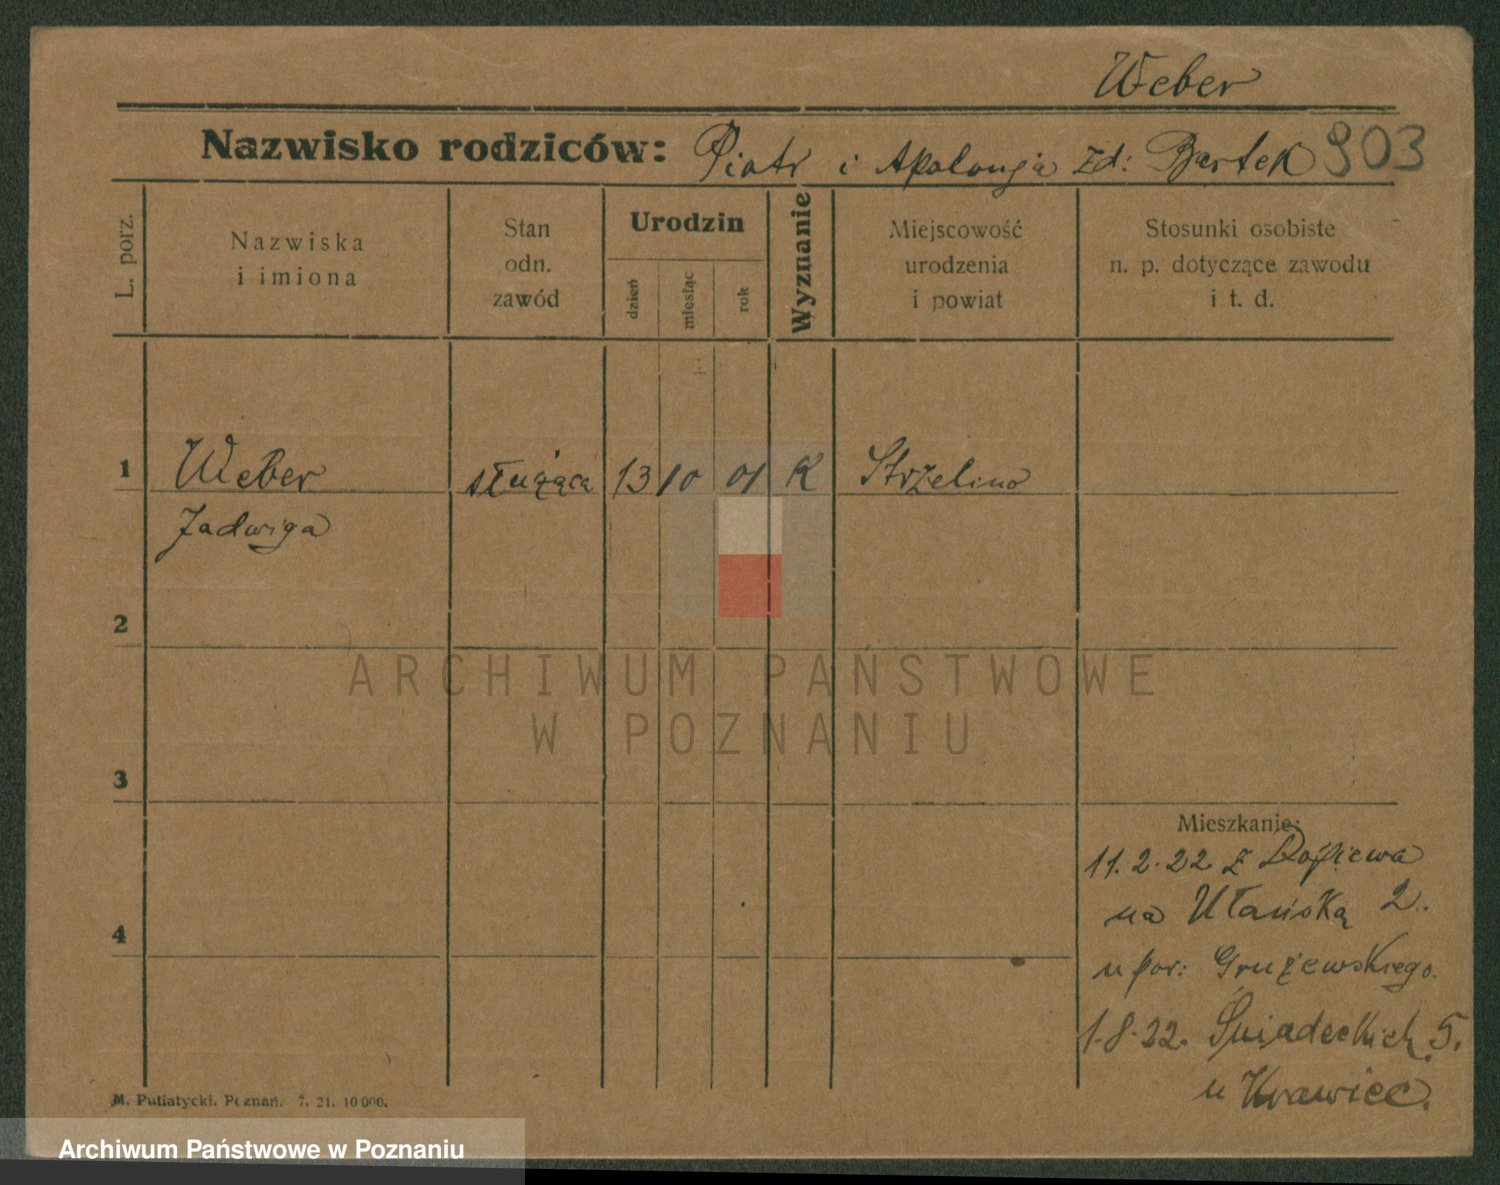 Weber
Nazwisko rodziców: Piotr i Apolonja zd: Bartek 903
L. porz.
Nazwiska
i imiona
Stan
odn.
zawód
Urodzin
dzień
miesiąc
rok
Wyznanie
Miejscowość
urodzenia
i powiat
Stosunki osobiste
n. p. dotyczące zawodu
i t. d.
1 Weber służąca 13 10 01 K Strzelino
Jadwiga
2
ARCHIWUM PAŃSTWOWE
W POZNANIU
3
Mieszkanie:
11.2.22 z Dopiewa
na Ułańską 2.
4
u por: Grużewskiego.
1.8.22. Śniadeckich 5.
u Krawiec.
M. Putiatycki. Poznań. 7. 21. 10000.
Archiwum Państwowe w Poznaniu